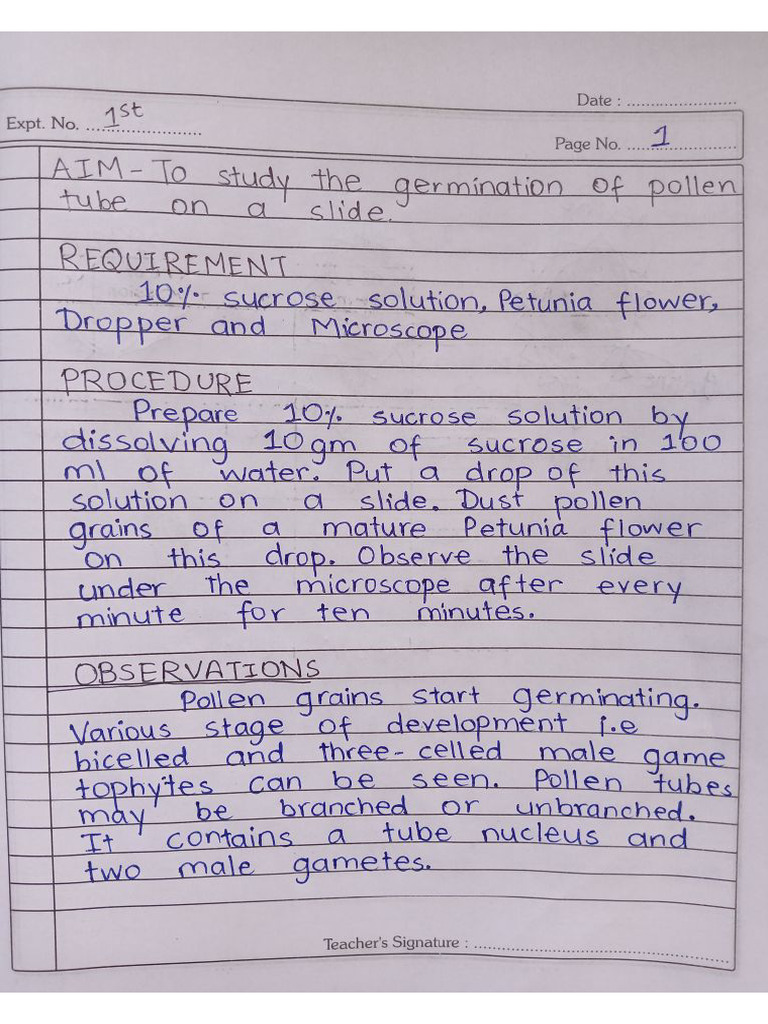 Date : ........................
Expt. No. 1st
Page No. 1
AIM - To study the germination of pollen
tube on a slide.
REQUIREMENT
10% sucrose solution, Petunia flower,
Dropper and Microscope
PROCEDURE
Prepare 10% sucrose solution by
dissolving 10gm of sucrose in 100
ml of water. Put a drop of this
solution on a slide. Dust pollen
grains of a mature Petunia flower
on this drop. Observe the slide
under the microscope after every
minute for ten minutes.
OBSERVATIONS
Pollen grains start germinating.
Various stage of development i.e
bicelled and three-celled male game
tophytes can be seen. Pollen tubes
may be branched or unbranched.
It contains a tube nucleus and
two male gametes.
Teacher's Signature : ................................................